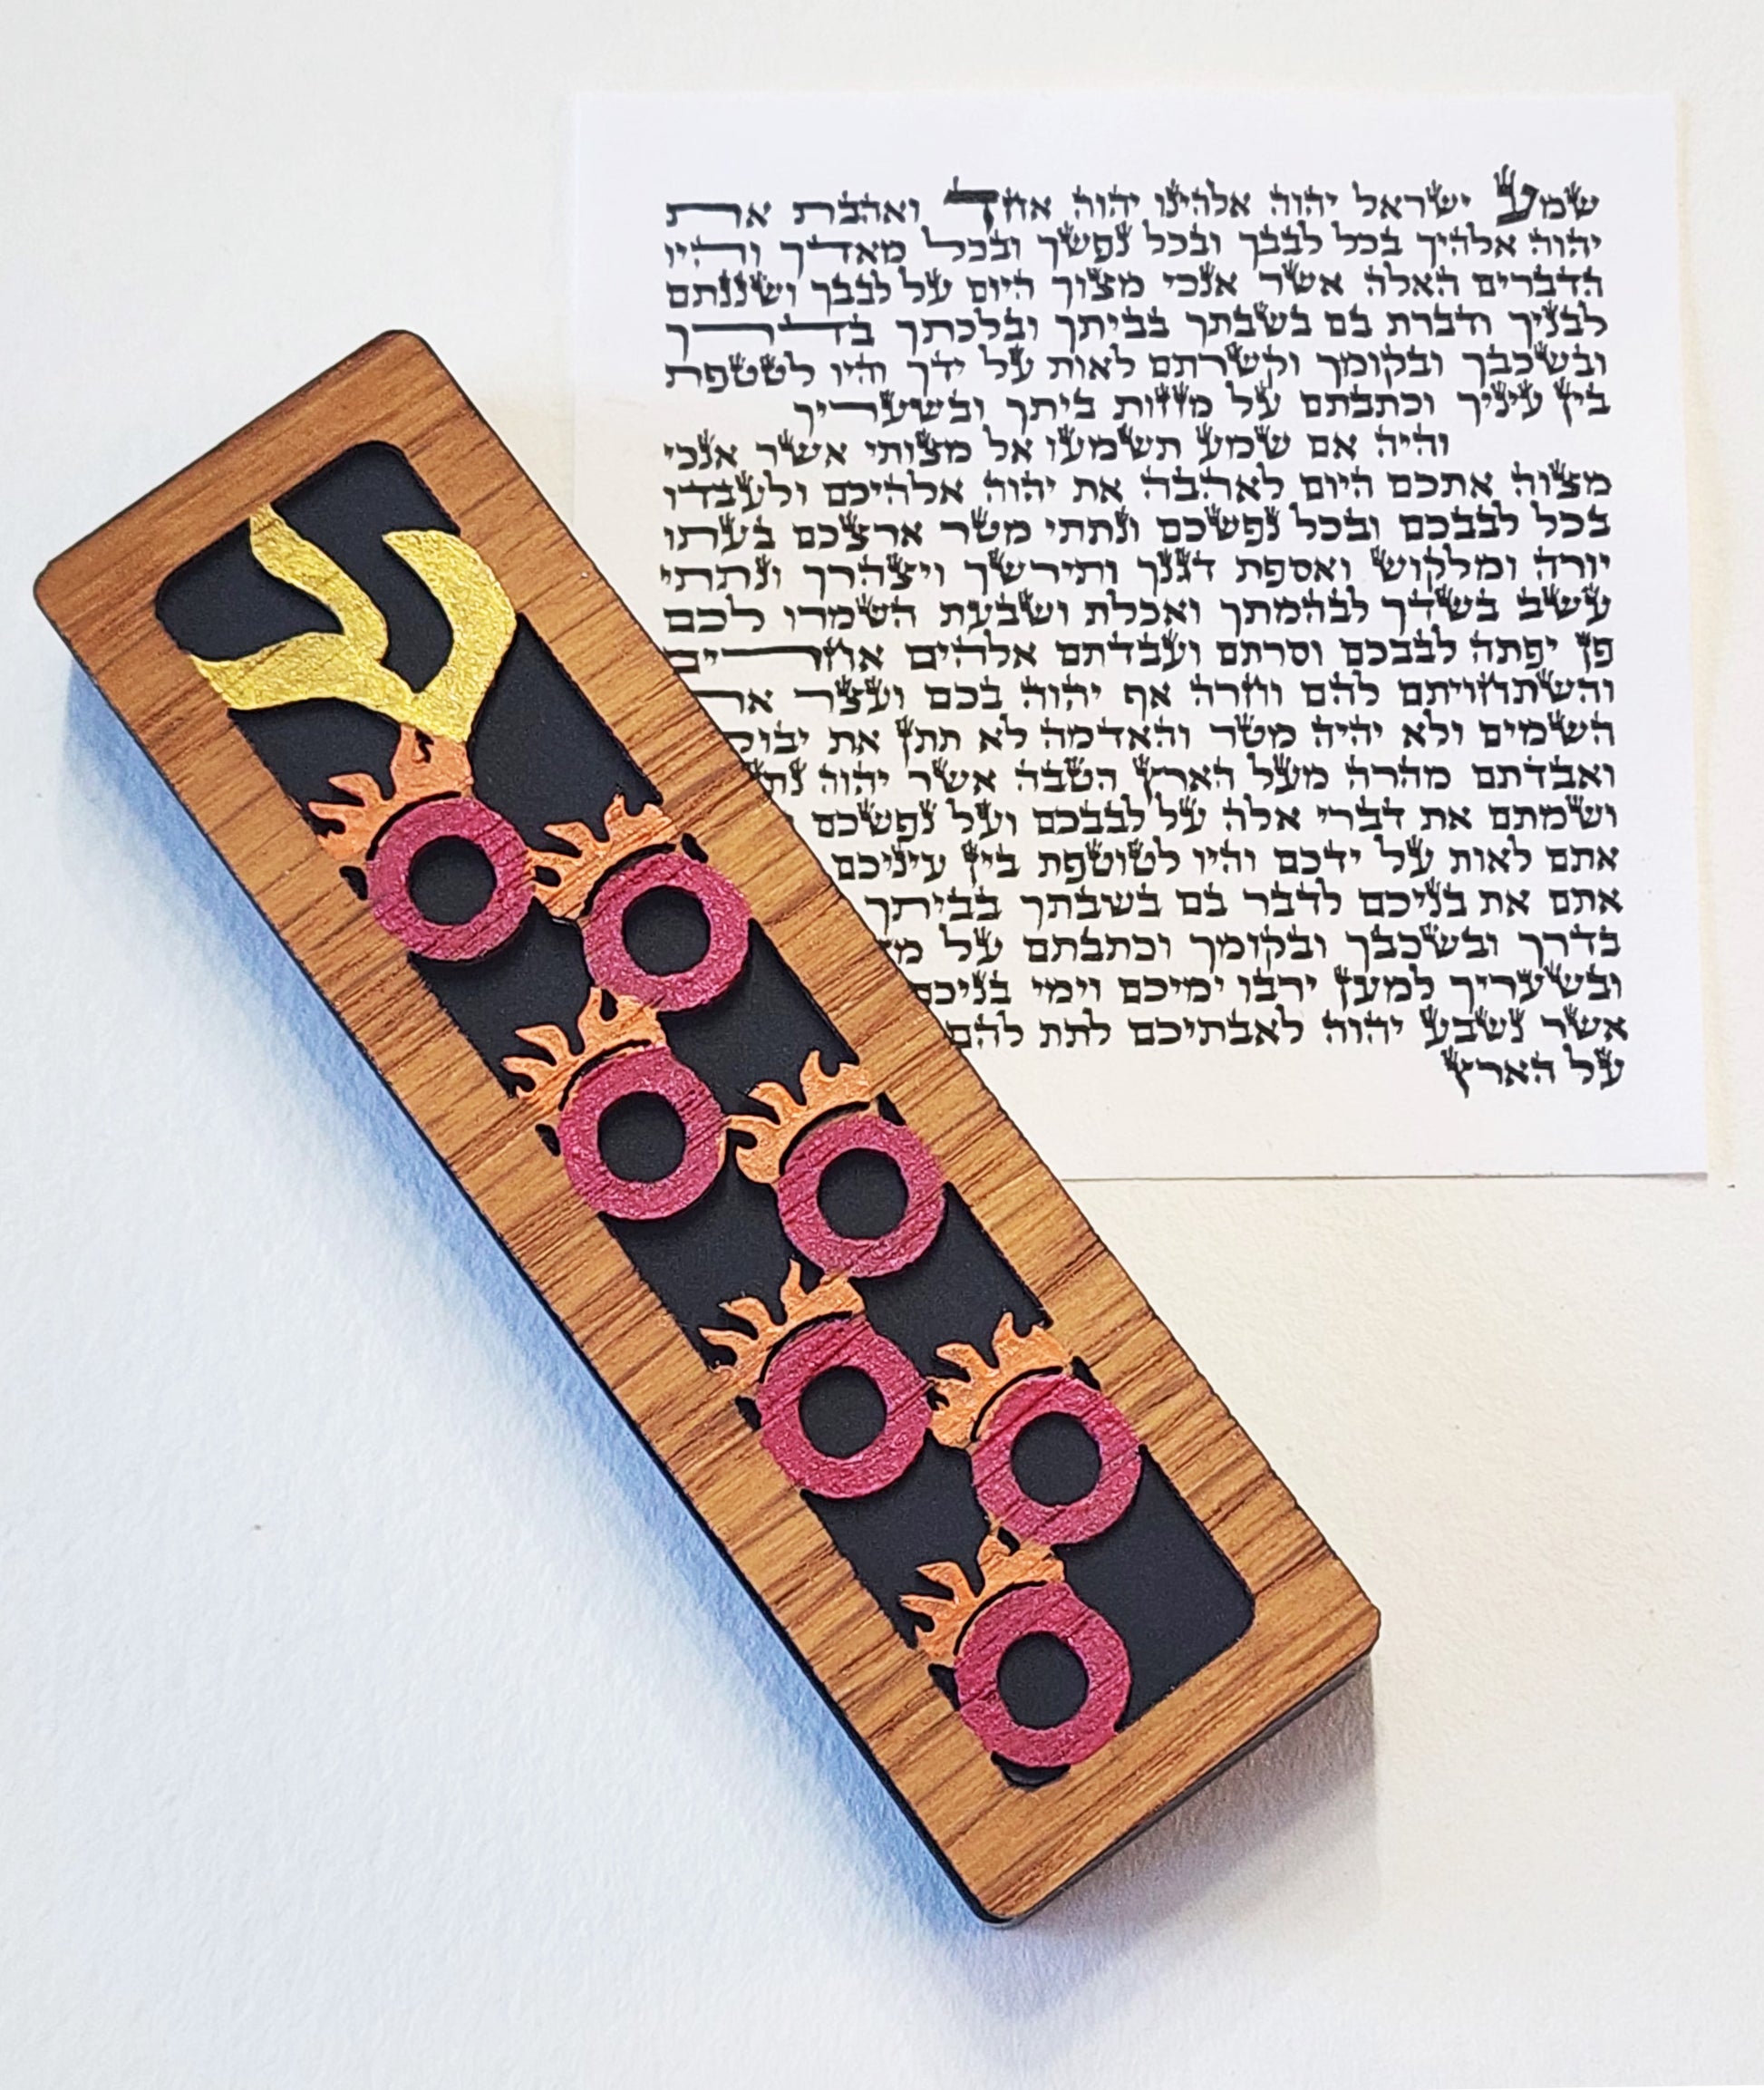 שמע ישראל יהוה אלהינו יהוה אחד ואהבת את
יהוה אלהיך בכל לבבך ובכל נפשך ובכל מאדך והיו
הדברים האלה אשר אנכי מצוך היום על לבבך ושננתם
לבניך ודברת בם בשבתך בביתך ובלכתך בדרך
ובשכבך ובקומך וקשרתם לאות על ידך והיו לטטפת
בין עיניך וכתבתם על מזזות ביתך ובשעריך
והיה אם שמע תשמעו אל מצותי אשר אנכי
מצוה אתכם היום לאהבה את יהוה אלהיכם ולעבדו
בכל לבבכם ובכל נפשכם ונתתי מטר ארצכם בעתו
יורה ומלקוש ואספת דגנך ותירשך ויצהרך ונתתי
עשב בשדך לבהמתך ואכלת ושבעת השמרו לכם
פן יפתה לבבכם וסרתם ועבדתם אלהים אחרים
והשתחויתם להם וחרה אף יהוה בכם ועצר
השמים ולא יהיה מטר והאדמה לא תתן את
ואבדתם מהרה מעל הארץ הטבה אשר יהוה
ושמתם את דברי אלה על לבבכם ועל נפשכם
אתם לאות על ידכם והיו לטוטפת בין עיניכם
אתם את בניכם לדבר בם בשבתך בביתך
בדרך ובשכבך ובקומך וכתבתם על
ובשעריך למען ירבו ימיכם וימי בניכם
אשר נשבע יהוה לאבתיכם לתת להם
על הארץ
ש